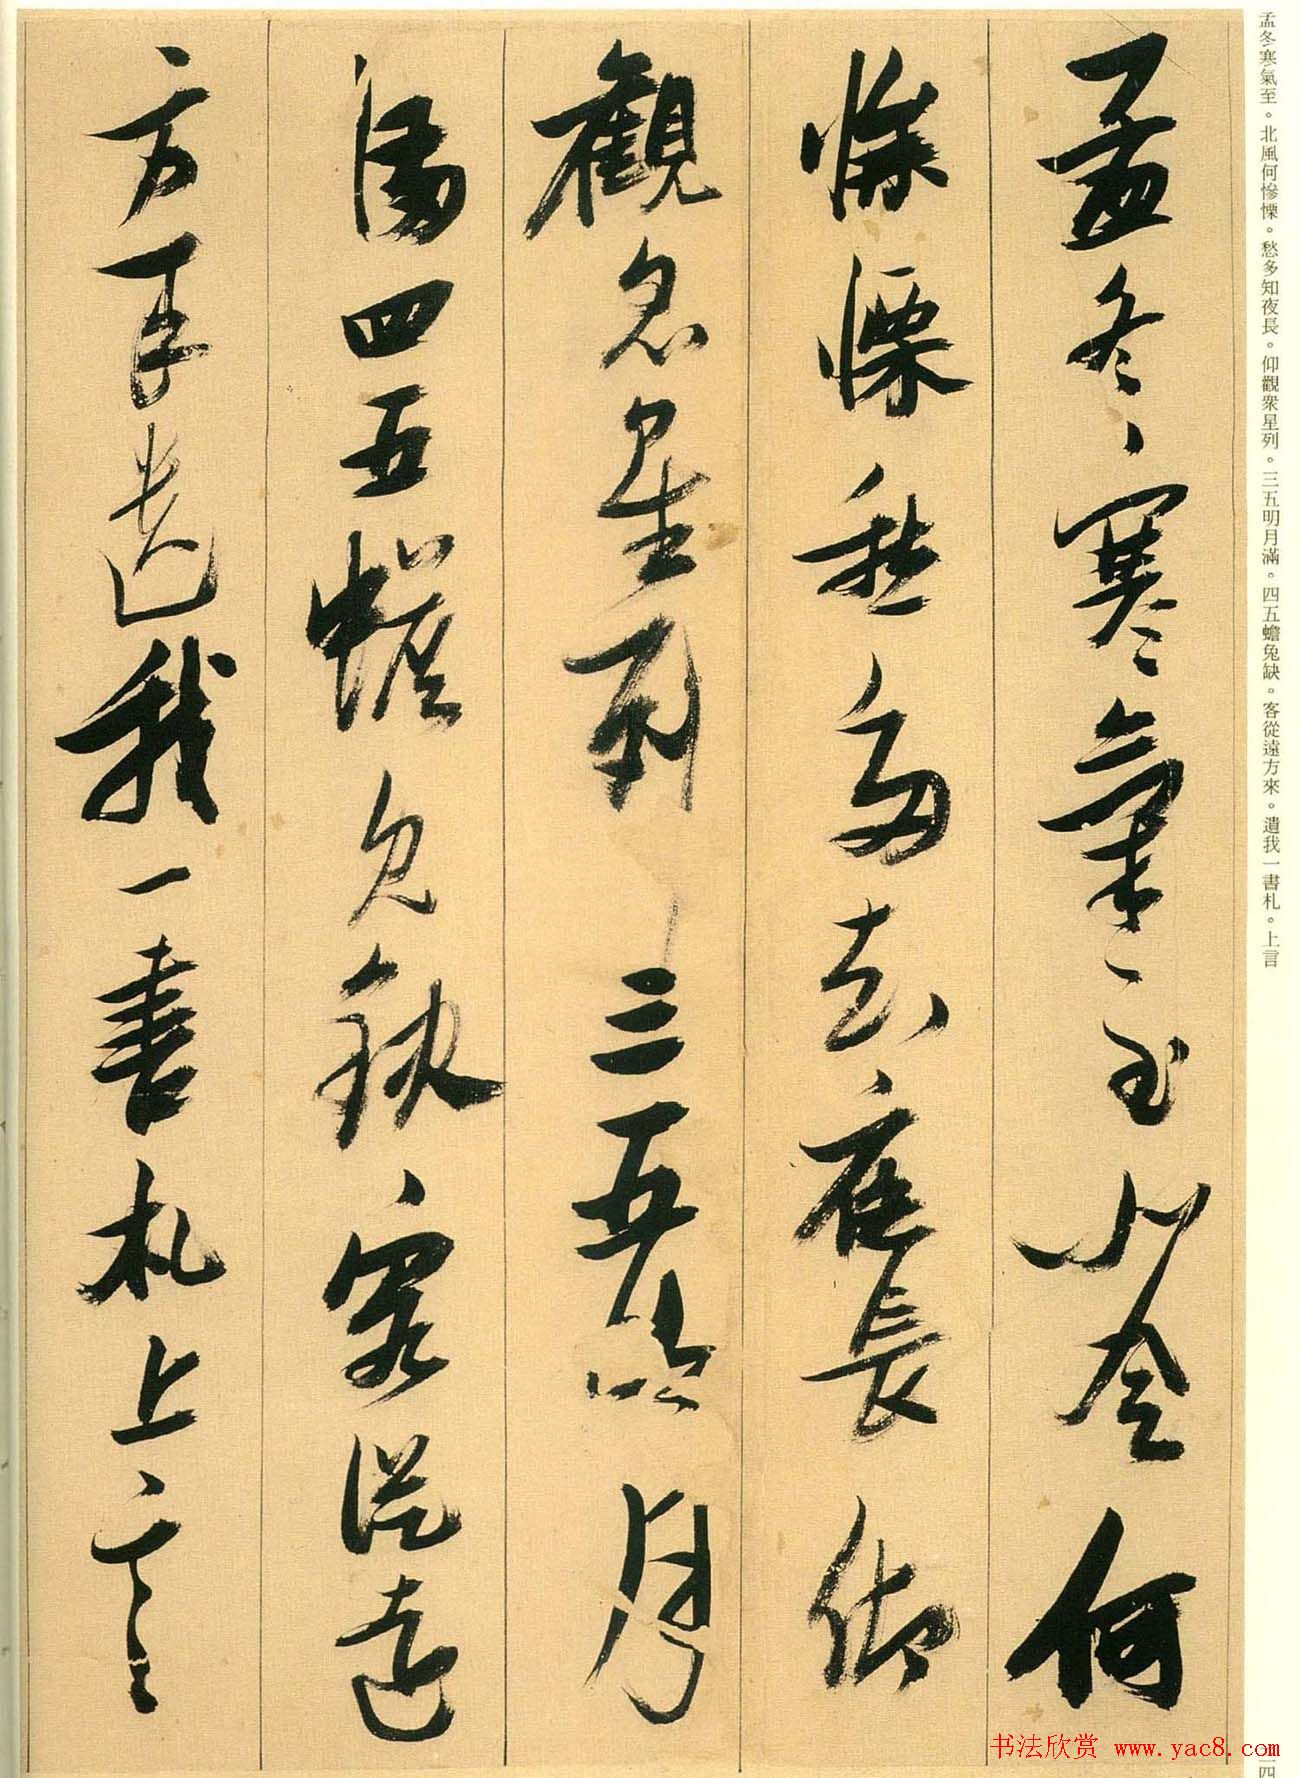 孟冬寒氣至北風何
慘慄愁多知夜長仰
觀衆星列三五明月
滿四五蟾兔缺客從遠
方來遺我一書札上言
孟冬寒氣至。北風何慘慄。愁多知夜長。仰觀衆星列。三五明月滿。四五蟾兔缺。客從遠方來。遺我一書札。上言
书法欣赏 www.yac8.com